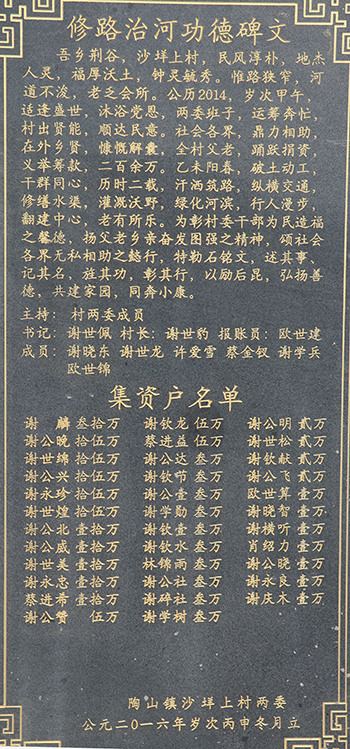 修路治河功德碑文
吾乡荆谷，沙垟上村，民风淳朴，地杰
人灵，福厚沃土，钟灵毓秀。惟路狭窄，河
道不浚，老乏会所。公历2014，岁次甲午，
适逢盛世，沐浴党恩，两委班子，运筹奔忙，
村出贤能，顺达民意。社会各界，鼎力相助，
在外乡贤，慷慨解囊，全村父老，踊跃捐资，
义举筹款，二百余万。乙未阳春，破土动工，
干群同心，历时二载，汗洒筑路，纵横交通，
修缮水渠，灌溉沃野，绿化河滨，行人漫步，
翻建中心，老有所乐。为彰村委干部为民造福
之馨德，扬父老乡亲奋发图强之精神，颂社会
各界无私相助之懿行，特勒石铭文，述其事、
记其名、旌其功，彰其行，以励后昆，弘扬善
德，共建家园，同奔小康。
主持： 村两委成员
书记：谢世佩 村长：谢世豹 报账员：欧世建
成员：谢晓东 谢世龙 许爱雪 蔡金钗 谢学兵
欧世锦
集资户名单
谢 麟 叁拾万 谢钦龙 伍万 谢公明 贰万
谢公晚 拾伍万 蔡进益 伍万 谢世松 贰万
谢世绵 拾伍万 谢公达 叁万 谢钦献 贰万
谢公兴 拾伍万 谢钦节 叁万 谢公飞 贰万
谢永珍 拾伍万 谢公壹 叁万 欧世算 壹万
谢世煌 壹拾万 谢学勋 叁万 谢晓智 壹万
谢公北 壹拾万 谢钦壹 叁万 谢横听 壹万
谢公威 壹拾万 谢钦水 叁万 肖绍力 壹万
谢世美 壹拾万 林锦雨 叁万 谢公晓 壹万
谢永忠 壹拾万 谢公社 叁万 谢永良 壹万
蔡进希 壹拾万 谢碎社 叁万 谢庆木 壹万
谢公赞 伍万 谢学树 叁万
陶山镇沙垟上村两委
公元二〇一六年岁次丙申冬月立